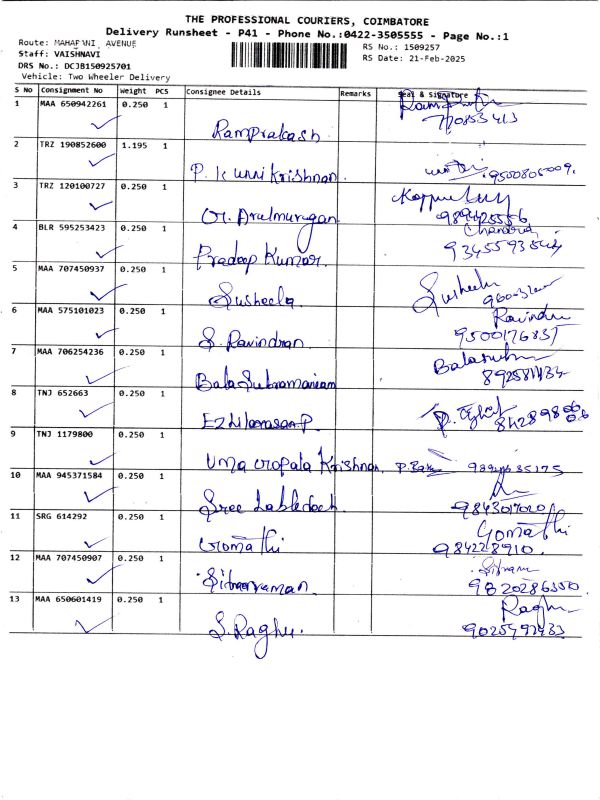 THE PROFESSIONAL COURIERS, COIMBATORE
Delivery Runsheet - P41 - Phone No.:0422-3505555 - Page No.:1
Route: MAHARANI AVENUE
RS No.: 1509257
Staff: VAISHNAVI
RS Date: 21-Feb-2025
DRS No.: DCJB150925701
Vehicle: Two Wheeler Delivery
S No Consignment No Weight PCS Consignee Details Remarks Seal & Signature
1 MAA 650942261 0.250 1 Ramprakash
2 TRZ 190852600 1.195 1 P. K Unni Krishnan 9500805009.
3 TRZ 120100727 0.250 1 Gr. Arulmurugan 989425556
4 BLR 595253423 0.250 1 Pradeep Kumar.
5 MAA 707450937 0.250 1 Susheela Susheela
6 MAA 575101023 0.250 1 S. Ravindran Ravindra
9500176837
7 MAA 706254236 0.250 1 Bala Subramaniam
8 TNJ 652663 0.250 1 Ezhilarasan P.
9 TNJ 1179800 0.250 1 Uma Gopala Krishnan
10 MAA 945371584 0.250 1 9843017020
11 SRG 614292 0.250 1 Gomathi Gomathi
984228910.
12 MAA 707450907 0.250 1 Sitaraman
9820286350.
13 MAA 650601419 0.250 1 S. Raghu. Raghu